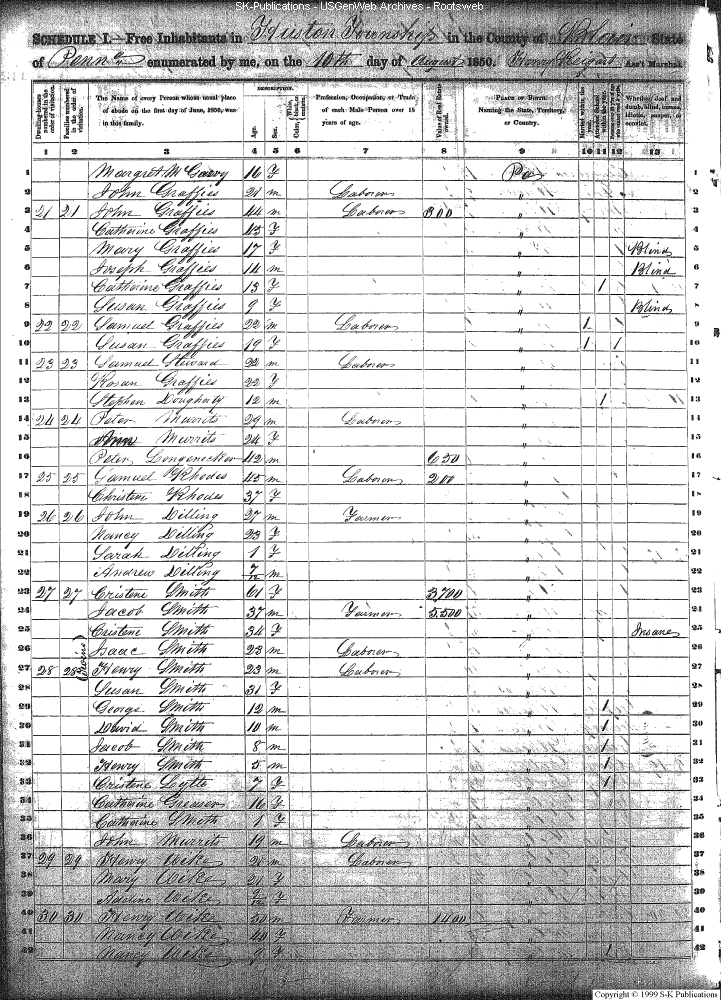 SK-Publications - USGenWeb Archives - Rootsweb
SCHEDULE I.—Free Inhabitants in Huston Township in the County of Blair State
of Penna enumerated by me, on the 10th day of August 1850. Henry Reigart Ass't Marshal.
Dwelling-houses numbered in the order of visitation. Families numbered in the order of visitation. The Name of every Person whose usual place of abode on the first day of June, 1850, was in this family. DESCRIPTION. Age. Sex. Color, White, black, or mulatto. Profession, Occupation, or Trade of each Male Person over 15 years of age. Value of Real Estate owned. PLACE OF BIRTH. Naming the State, Territory, or Country. Married within the year. Attended School within the year. Whether deaf and dumb, blind, insane, idiotic, pauper, or convict.
1 2 3 4 5 6 7 8 9 10 11 12 13
1 Margret McGarry 16 F Pa 1
2 John Graffies 21 m Laborer " 2
3 21 21 John Graffies 44 m Laborer 300 " 3
4 Catharine Graffies 43 F " 4
5 Mary Graffies 17 F " Blind 5
6 Joseph Graffies 14 m " Blind 6
7 Catharine Graffies 13 F " 1 7
8 Susan Graffies 9 F " Blind 8
9 22 22 Samuel Graffies 22 m Laborer " 1 9
10 Susan Graffies 19 F " 1 1 10
11 23 23 Samuel Steward 22 m Laborer " 11
12 Rosan Graffies 22 F " 12
13 Stephen Dougherty 12 m " 1 13
14 24 24 Peter Murrits 29 m Laborer " 14
15 Ann Murrits 24 F " 15
16 Peter Longenecker 42 m 650 " 16
17 25 25 Samuel Rhodes 45 m Laborer 200 " 17
18 Christene Rhodes 37 F " 18
19 26 26 John Dilling 27 m Farmer " 19
20 Nancy Dilling 23 F " 20
21 Sarah Dilling 1 F " 21
22 Andrew Dilling 7/12 m " 22
23 27 27 Cristene Smith 61 F 3700 " 23
24 Jacob Smith 37 m Farmer 5500 " 24
25 Cristene Smith 34 F " Insane 25
26 Isaac Smith 23 m Laborer " 26
27 28 28 Henry Smith 23 m Laborer " 27
28 Susan Smith 31 F " 28
29 George Smith 12 m " 1 29
30 David Smith 10 m " 1 30
31 Jacob Smith 8 m " 1 31
32 Henry Smith 5 m " 1 32
33 Cristene Lytle 7 F " 1 33
34 Catharine Greaser 16 F " 34
35 Catharine Smith 1 F " 35
36 John Murrits 19 m Laborer " 36
37 29 29 Henry Wike 21 m Laborer " 37
38 Mary Wike 21 F " 38
39 Adeline Wike F " 39
40 30 30 Henry Wike 50 m Farmer 1400 " 40
41 Nancy Wike 40 F " 41
42 Nancy Wike 9 F " 1 42
Copyright © 1999 S-K Publications